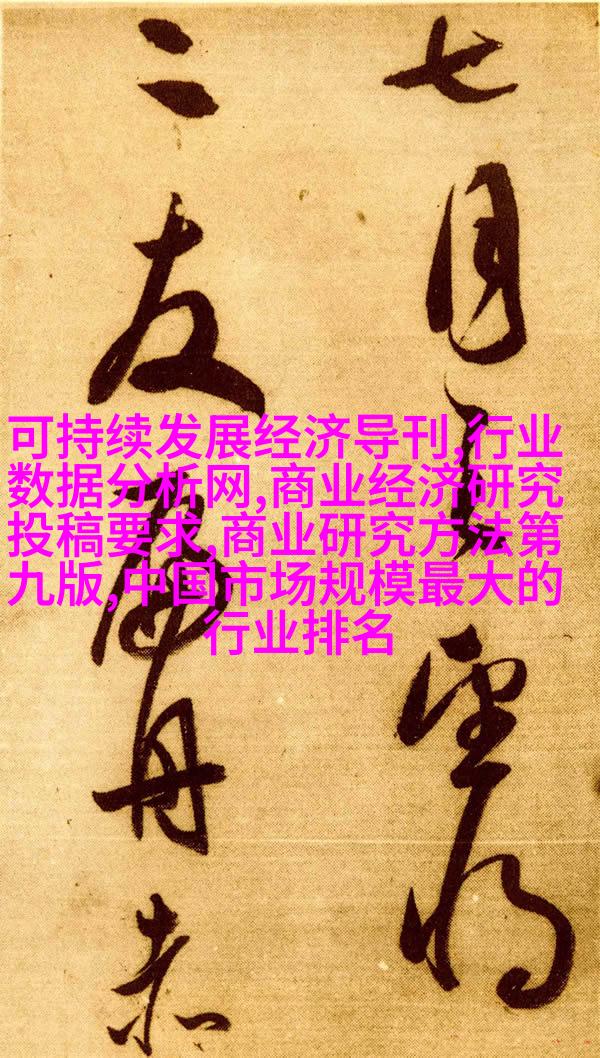 七月望将
二友舟赤
可持续发展经济导刊,行业
数据分析网,商业经济研究
投稿要求,商业研究方法第
九版,中国市场规模最大的
行业排名